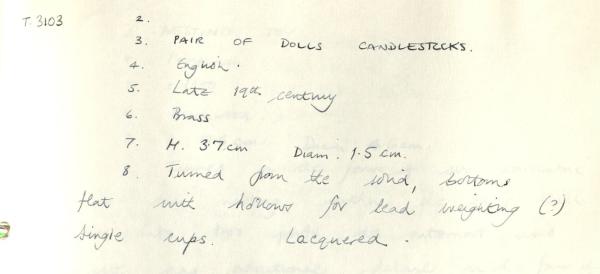 T.3103 2.
3. PAIR OF DOLLS CANDLESTICKS.
4. English.
5. Late 19th century
6. Brass
7. H. 3.7cm Diam. 1.5 cm.
8. Turned from the solid, bottoms
flat with hollows for lead weighting (?)
Single cups. Lacquered.